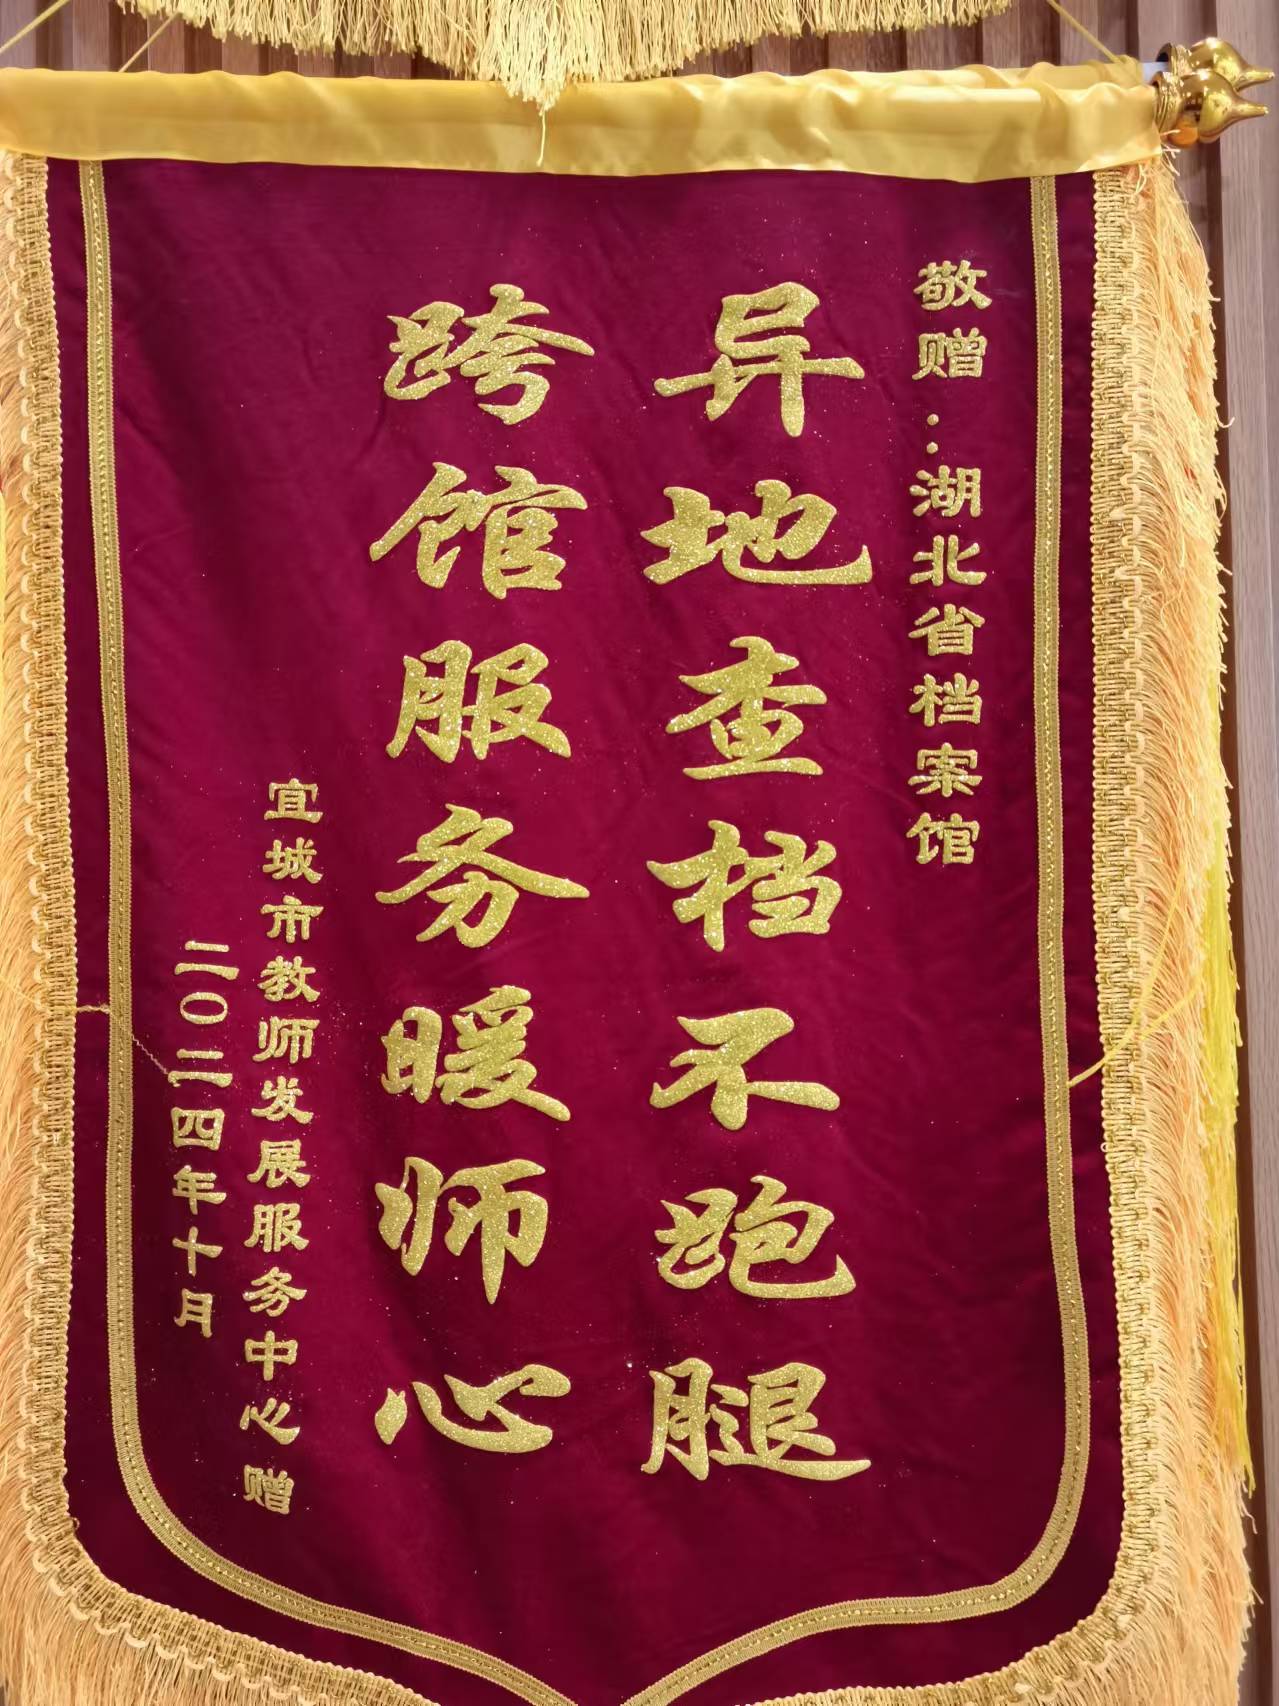 敬赠：湖北省档案馆
异地查档不跑腿
跨馆服务暖师心
宜城市教师发展服务中心赠
二〇二四年十月